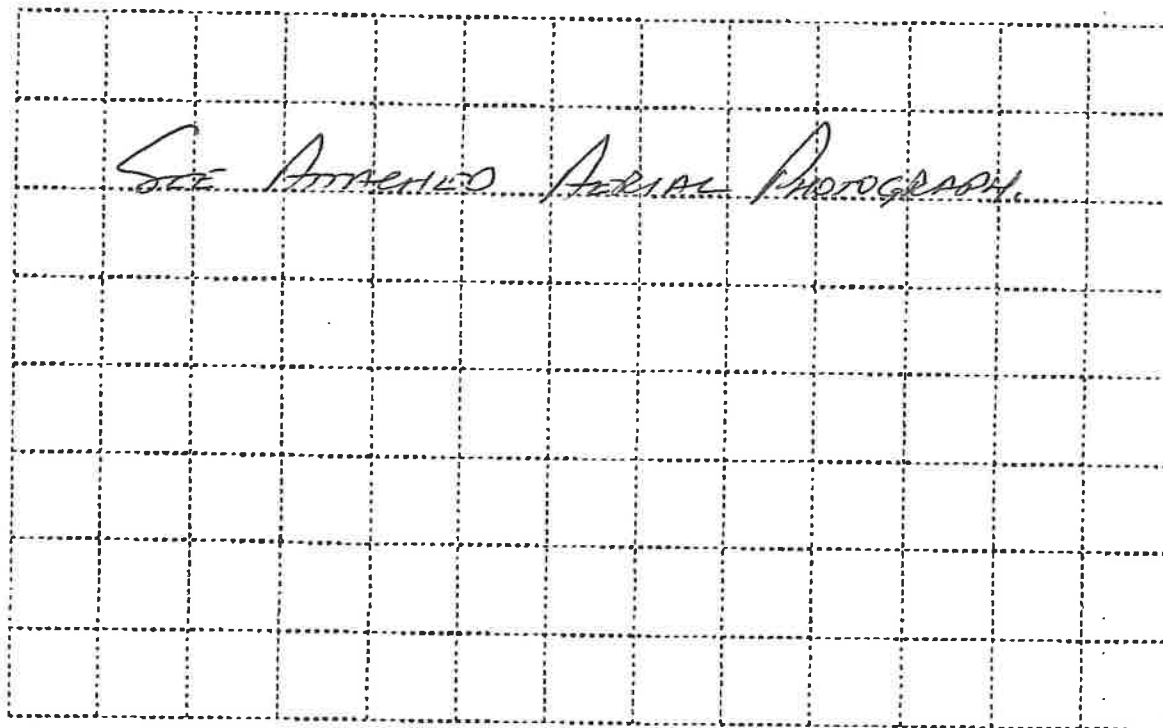 SEE ATTACHED AERIAL PHOTOGRAPH.